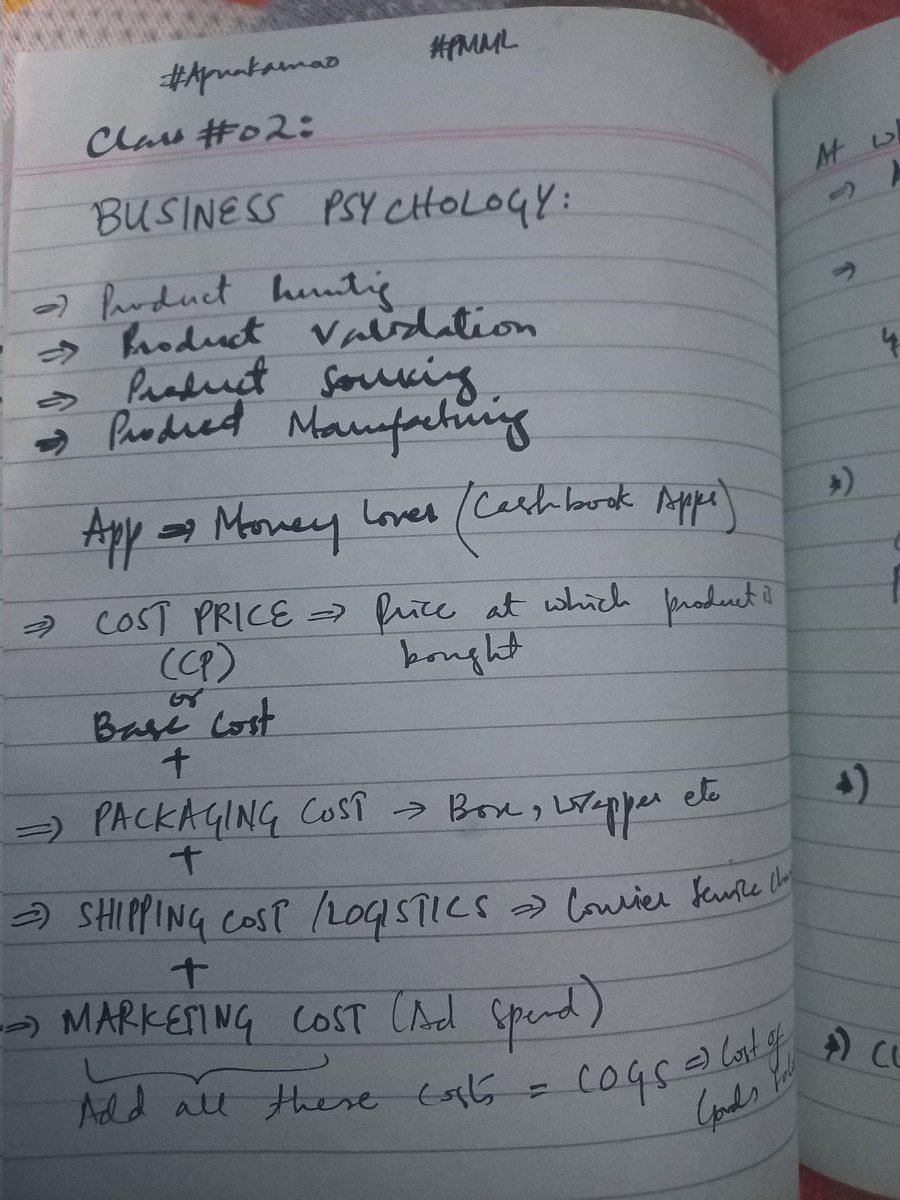 #Apnakamao #PMML
Class #02:
BUSINESS PSYCHOLOGY:
⇒ Product hunting
⇒ Product Validation
⇒ Product Sourcing
⇒ Product Manufacturing
App ⇒ Money Lover (Cashbook Apps)
⇒ COST PRICE ⇒ Price at which product is
(CP) bought
or
Base Cost
+
⇒ PACKAGING COST → Box, Wrapper etc
+
⇒ SHIPPING COST /LOGISTICS ⇒ Courier Service
+
⇒ MARKETING COST (Ad Spend)
Add all these costs = COGS ⇒ Cost of
Goods
At
⇒
⇒